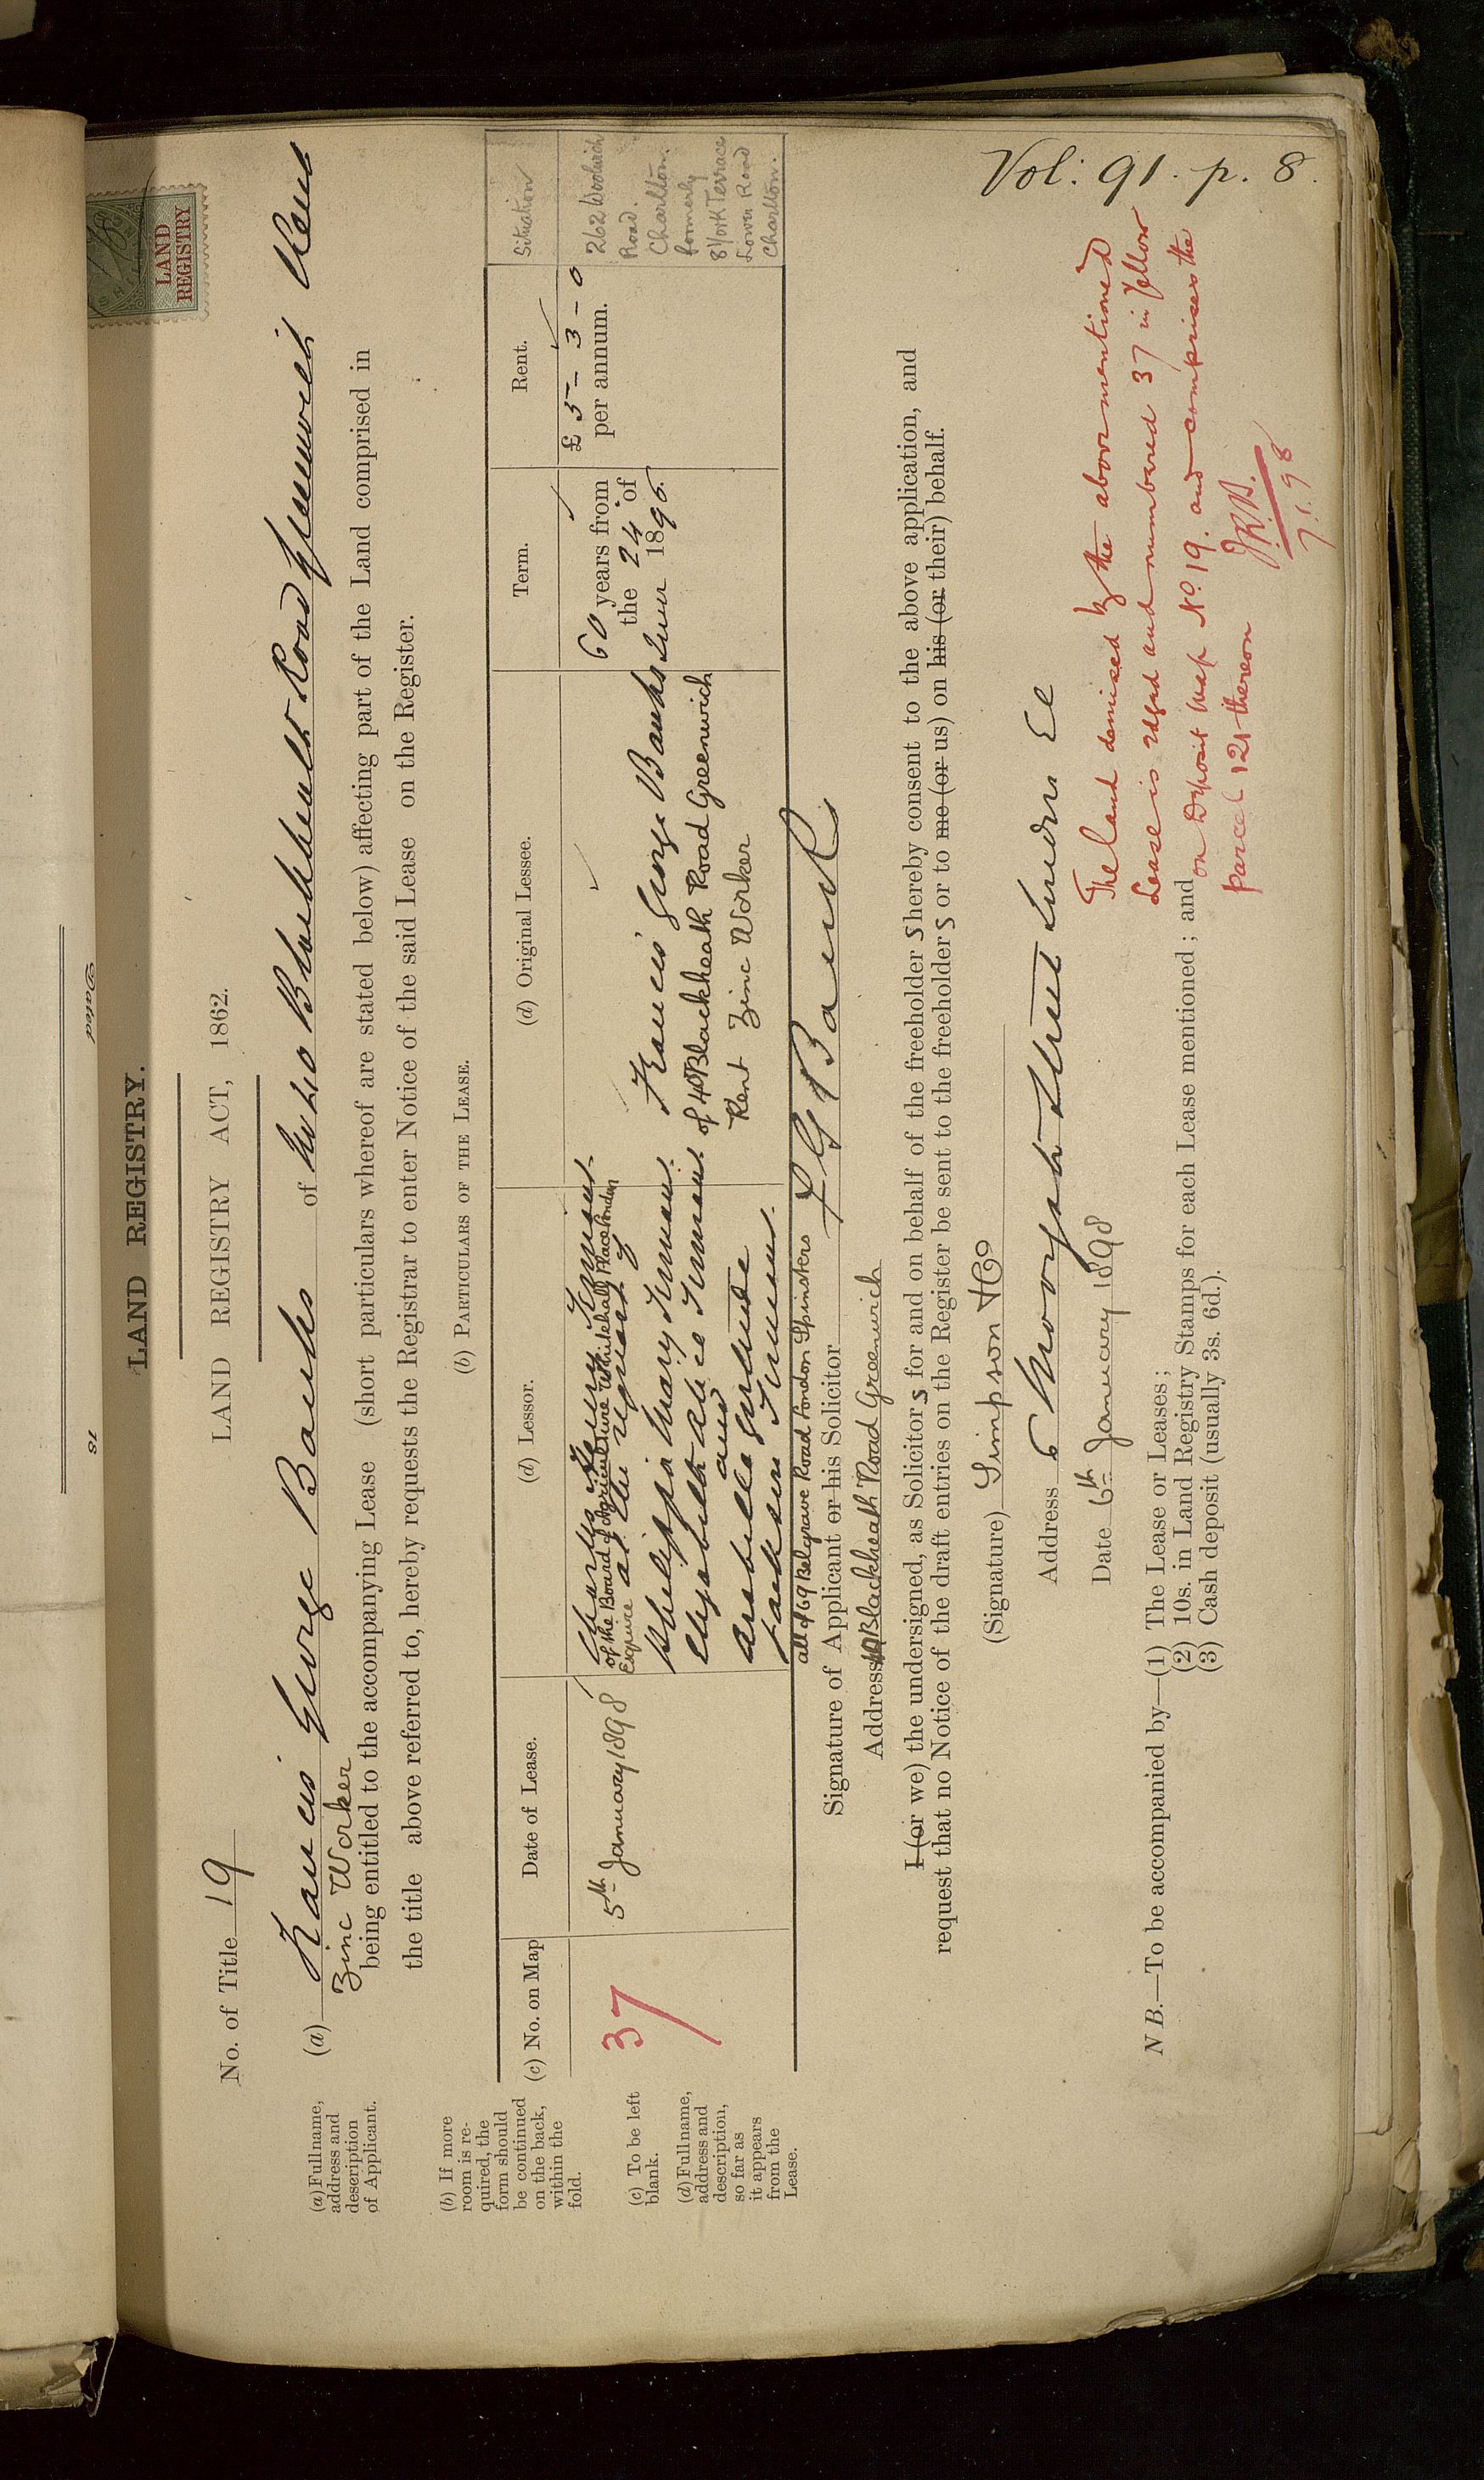 Dated
18
LAND REGISTRY.
LAND REGISTRY ACT, 1862.
LAND
REGISTRY
No. of Title 19
(a) Francis George Banks of No 40 Blackheath Road Greenwich Kent
Zinc Worker
being entitled to the accompanying Lease (short particulars whereof are stated below) affecting part of the Land comprised in
the title above referred to, hereby requests the Registrar to enter Notice of the said Lease on the Register.
(a) Full name,
address and
description
of Applicant.
(b) PARTICULARS OF THE LEASE.
(b) If more
room is re-
quired, the
form should
be continued
on the back,
within the
fold.
(c) To be left
blank.
(d) Full name,
address and
description,
so far as
it appears
from the
Lease.
(c) No. on Map
37
Date of Lease.
5th January 1898
(d) Lessor.
Charles Henry Inman
of the Board of Agriculture Whitehall Place London
Esquire at the request of
Philippa Mary Inman
Elizabeth Alice Inman
and
Arabella Gertrude
Jackson Inman
all of 69 Belgrave Road London Spinsters
(d) Original Lessee.
Francis George Banks
of 40 Blackheath Road Greenwich
Kent Zinc Worker
Term.
60 years from
the 24 of
June 1896.
Rent.
£ 5 - 3 - 0
per annum.
Situation
262 Woolwich
Road.
Charlton.
formerly
8 York Terrace
Lower Road
Charlton.
Signature of Applicant or his Solicitor F G Banks
Address 40 Blackheath Road Greenwich
I (or we) the undersigned, as Solicitors for and on behalf of the freeholders hereby consent to the above application, and
request that no Notice of the draft entries on the Register be sent to the freeholders or to me (or us) on his (or their) behalf.
(Signature) Simpson & Co
Address 6 Moorgate Street London EC
Date 6th January 1898
N B.—To be accompanied by—(1) The Lease or Leases;
(2) 10s. in Land Registry Stamps for each Lease mentioned; and
(3) Cash deposit (usually 3s. 6d.).
Vol: 91. p. 8.
The land demised by the abovementioned
Lease is edged and numbered 37 in Yellow
on Deposit Map No. 19. and comprises the
parcel 121 thereon
7.1.98